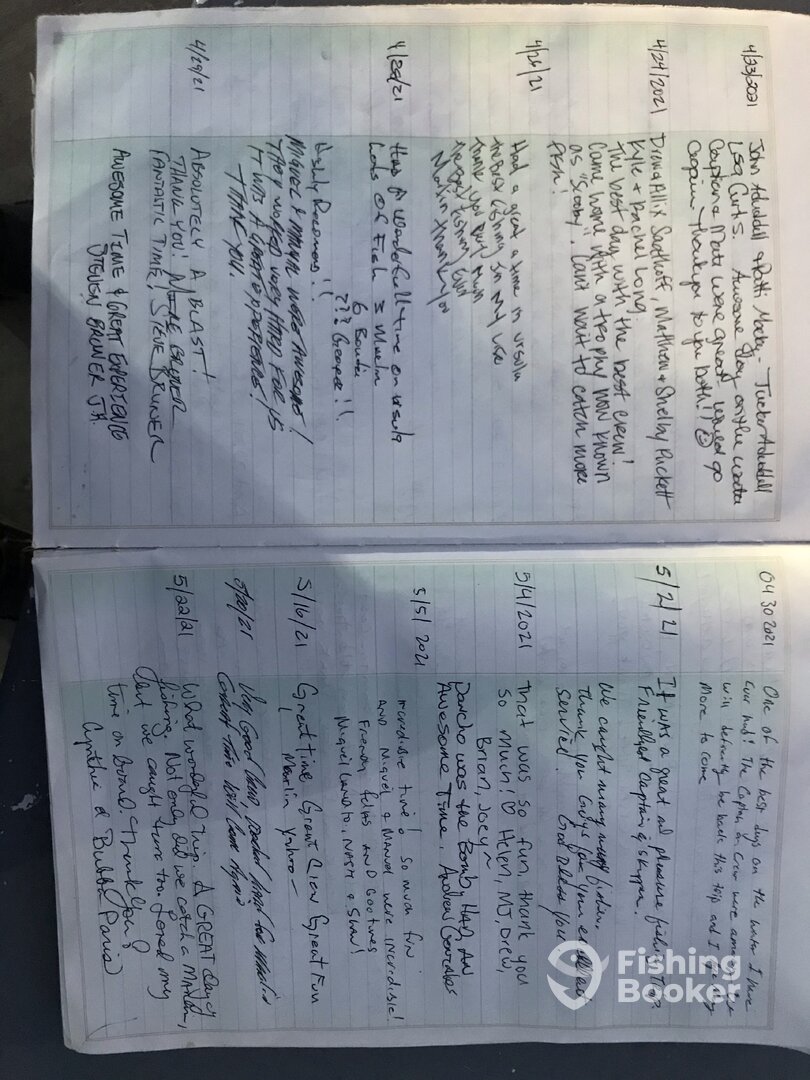 4/23/2021
John Aduddell & Patti Mackey - Tucker Aduddell
Curt S. Awesome day on the water
Captain & Mate were great! Would go
again. Thank you to you both!!
4/24/2021
Matthew & Shelby Puckett
Kyle & Rachel Long
The best day with the best crew!
Came home with a trophy now known
as "Scooby". Can't wait to catch more
fish!
4/26/21
Had a great a time in ursula
the Best fishing in my life
thank you
4/28/21
Had A Wonderfull time on ursula
Lots of Fish 3 Marlin
6 Bonita
??? Grouper!!
Highly Recommend!!
Miguel & Manuel were awesome!
They worked very hard for us
It was a great experience!
Thank you.
4/29/21
ABSOLUTELY A BLAST!
THANK YOU! BRUNER
FANTASTIC TIME! STEVE BRUNER
AWESOME TIME & GREAT EXPERIENCE
STEVEN BRUNER JR.
04 30 2021
One of the best days on the water I have
ever had! The Captain and Crew were amazing
will definitely be back this trip and I
More to come
5/2/21
It was a great and pleasure fishing trip.
Friendliest Captain & skipper.
We caught many
Thank you Guys for your excellent
service! God Bless you
5/4/2021
That was so fun, thank you
so much! ♡ Helen, MJ, Drew,
Brian, Joey~
Poncho was the Bomb, Had An
Awesome Time, Andrew Gonzales
5/5/2021
Incredible time! So much fun
and Miguel & Manuel were incredible!
Friendly folks and Good times
5/16/21
Great Time Great Crew Great Fun
Marlin
5/20/21
Very Good Crew,
5/22/21
What wonderful trip. A GREAT day of
fishing. Not only did we catch a Marlin,
but we caught tuna too. Loved my
time on Board. Thank you!
Cynthia & Bubba Paris
Fishing
Booker